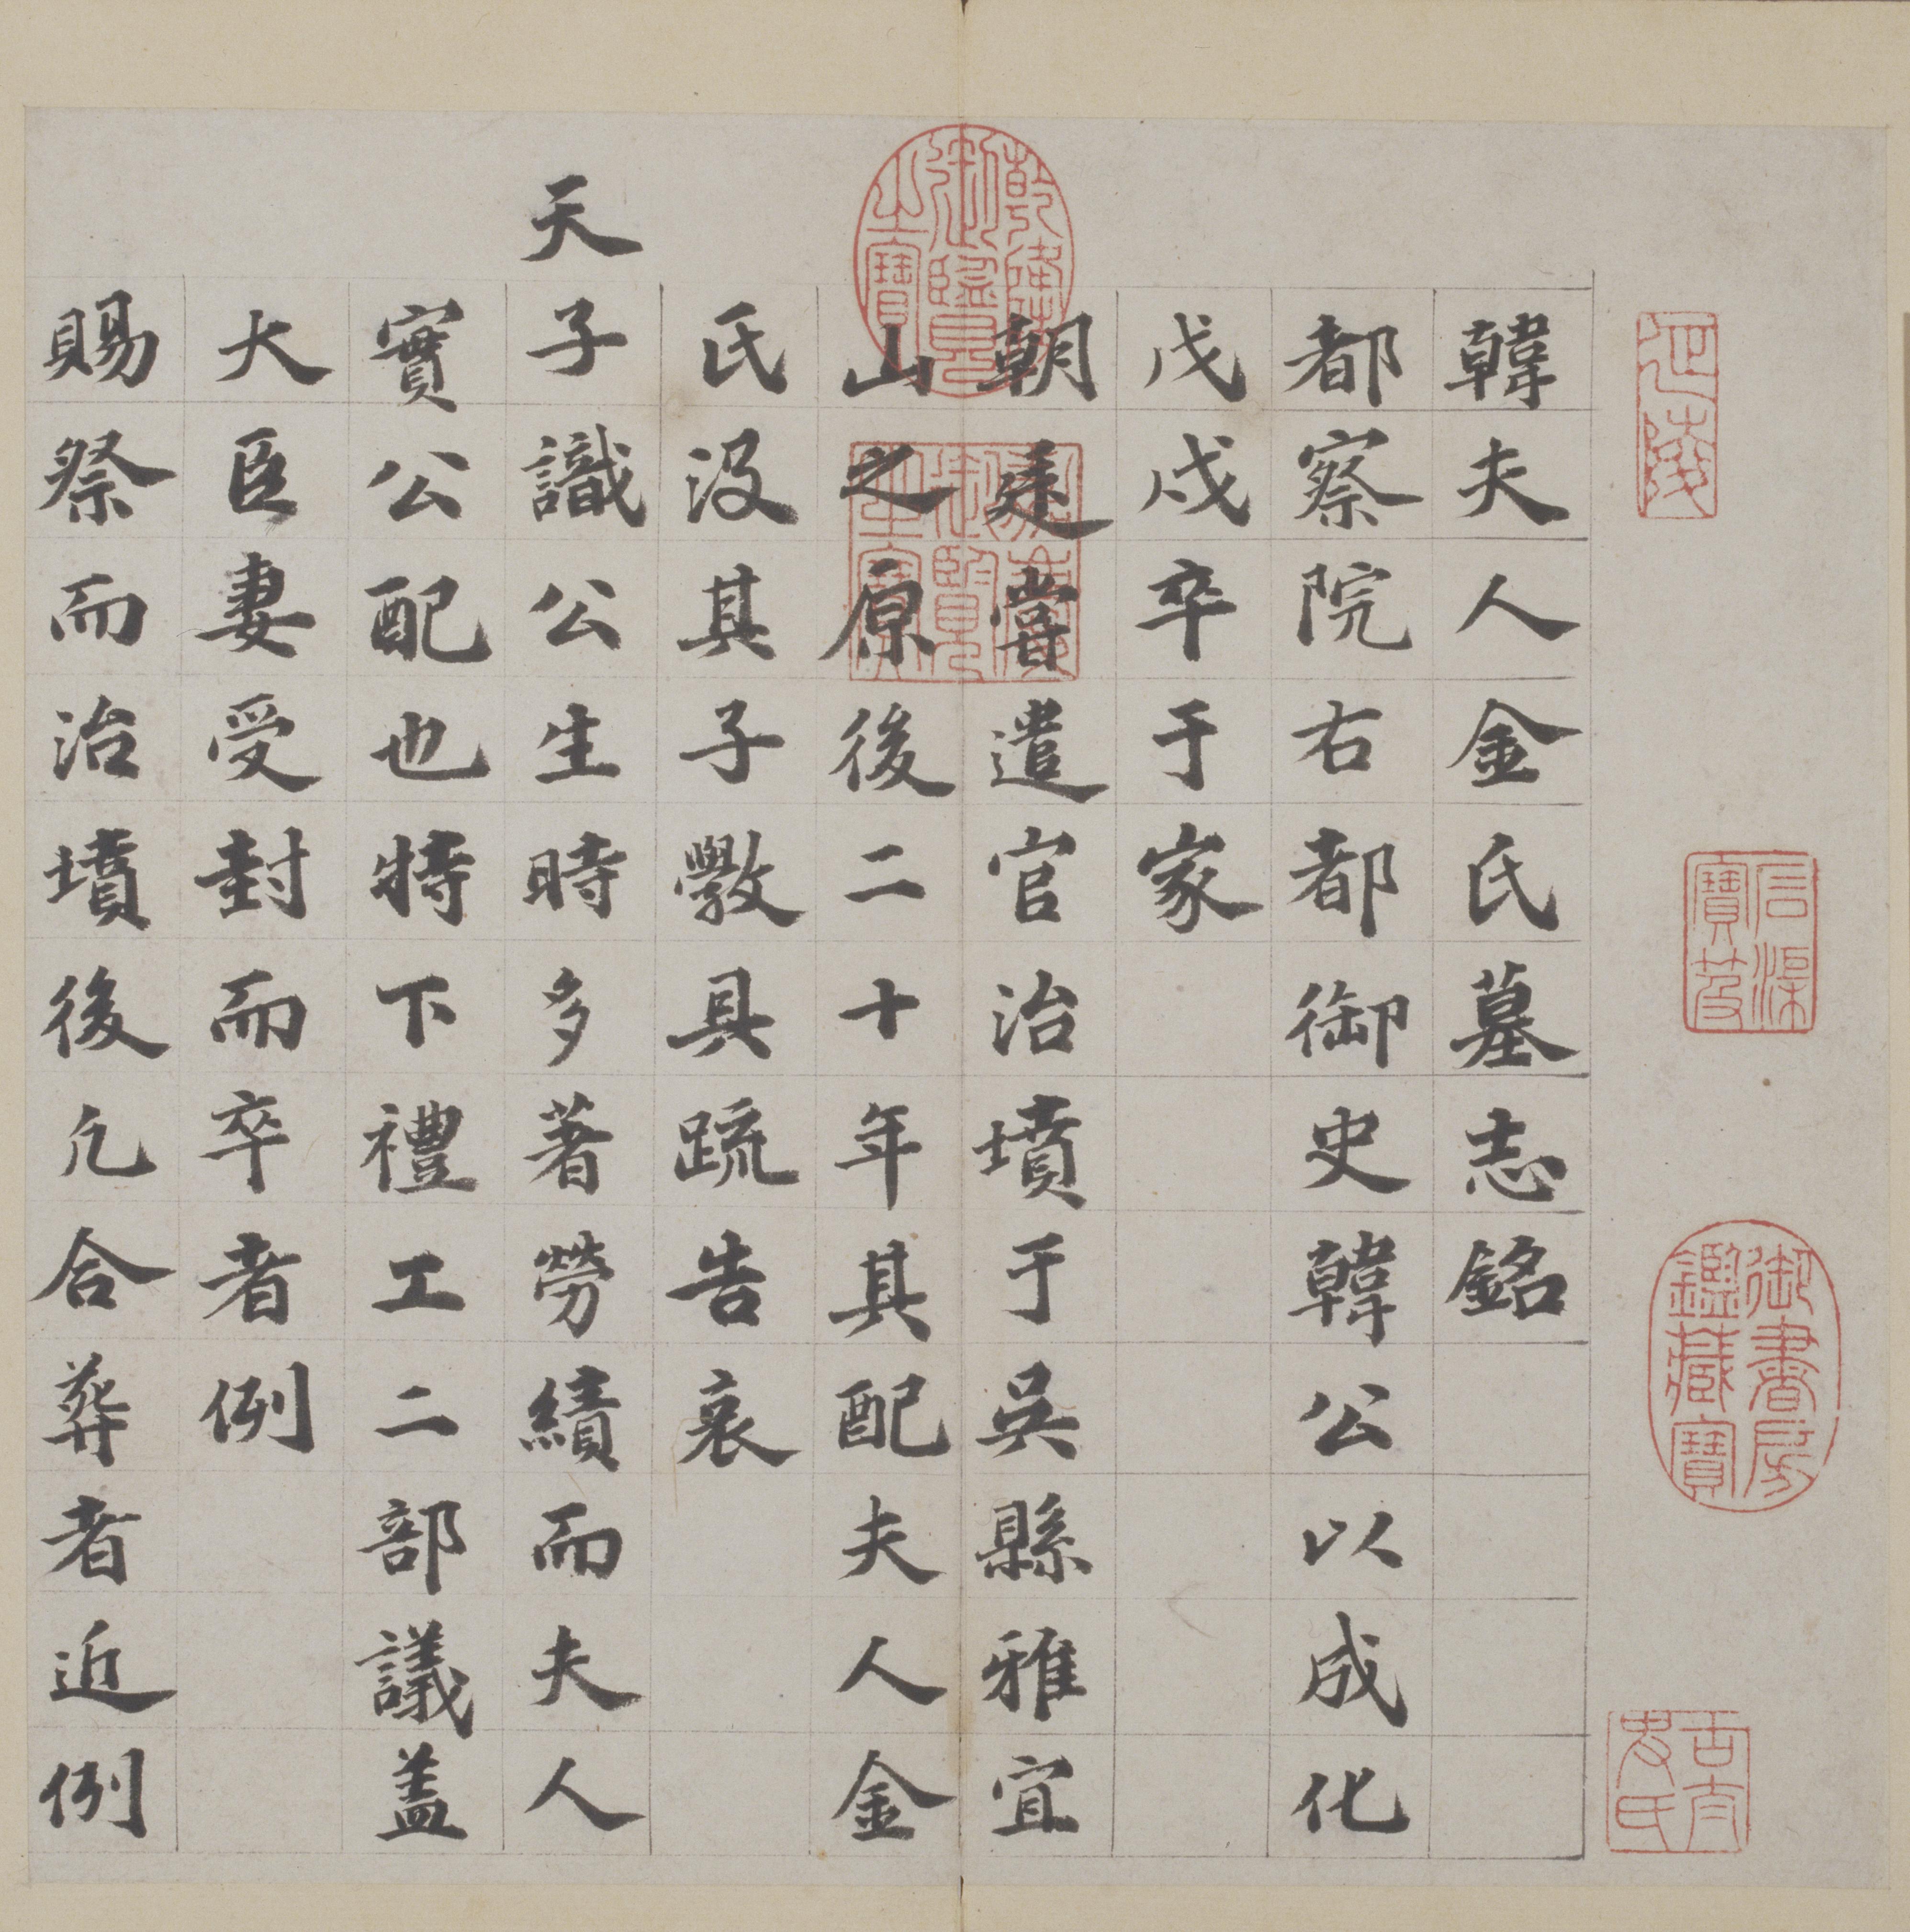 延陵
石渠寶笈
御書房鑑藏寶
古太史氏
韓夫人金氏墓志銘
都察院右都御史韓公以成化
戊戌卒于家
朝廷嘗遣官治墳于吳縣雅宜
山之原後二十年其配夫人金
氏没其子斆具疏告哀
天子識公生時多著勞績而夫人
實公配也特下禮工二部議盖
大臣妻受封而卒者例
賜祭而治墳後凢合葬者近例
乾隆御覽之寶
嘉慶御覽之寶